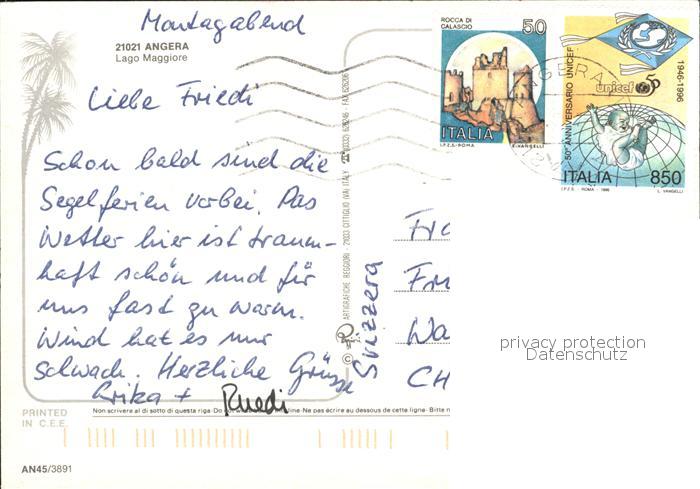 Montagabend
21021 ANGERA
Lago Maggiore
Liebe Friedi
Schon bald sind die
Segelferien vorbei. Das
Wetter hier ist traum-
haft schön und für
uns fast zu warm.
Wind hat es nur
schwach. Herzliche Grüsse
Erika + Ruedi
PRINTED
IN C.E.E.
AN45/3891
Non scrivere al di sotto di questa riga
Ne pas écrire au dessous de cette ligne
ARTIGRAFICHE REGGIORI - 21033 CITTIGLIO (VA) ITALY
Svizzera
CH
ROCCA DI
CALASCIO
50
ITALIA
I.P.Z.S.-ROMA E.VANGELLI
50° ANNIVERSARIO UNICEF
1946-1996
unicef
ITALIA 850
I.P.Z.S. - ROMA - 1996 L. VANGELLI
privacy protection
Datenschutz